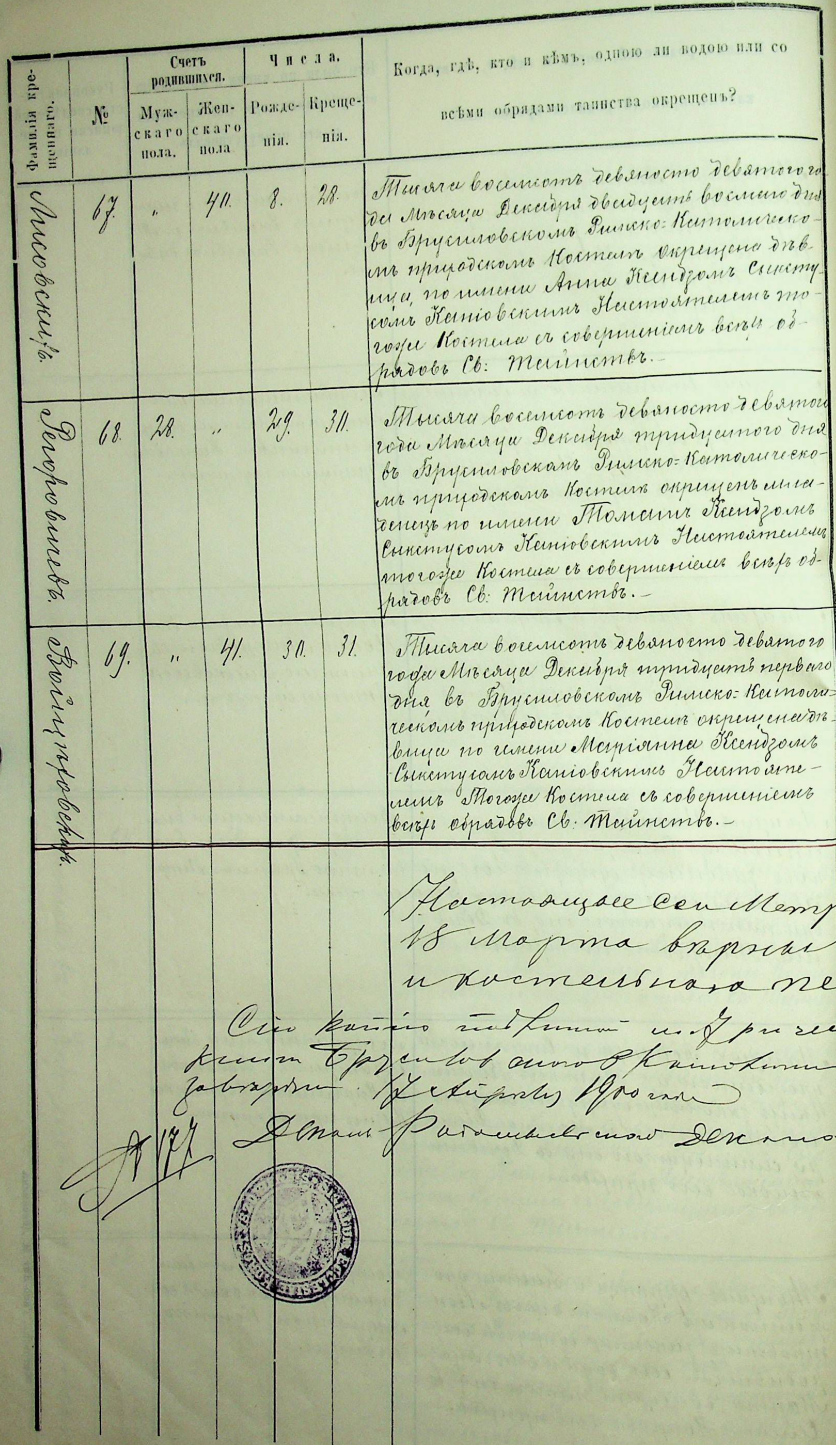 Фамилія кре-
щеннаго.
№
Счетъ
родившихся.
Муж-
скаго
пола.
Жен-
скаго
пола
Числа.
Рожде-
нія.
Креще-
нія.
Когда, гдѣ, кто и кѣмъ, одною ли водою или со
всѣми обрядами таинства окрещенъ?
Лисовскихъ.
67. „ 40. 8. 28.
Тысяча восемсотъ девяносто девятого го-
да Мѣсяца Декабря двадцать восмаго дня
въ Брусиловскомъ Римско-Католическо-
мъ приходскомъ Костелѣ окрещена дѣв-
ица, по имени Анна Ксендзомъ Сыксту-
сомъ Каніовскимъ Настоятелемъ то-
гоже Костела съ совершеніемъ всѣхъ об-
рядовъ Св: Таинствъ.-
68. 28. „ 29. 30.
Тысяча восемсотъ девяносто девятого
года Мѣсяца Декабря тридцатого дня
въ Брусиловскомъ Римско-Католическо-
мъ приходскомъ Костелѣ окрещенъ мла-
денецъ по имени Томашъ Ксендзомъ
Сыкстусомъ Каніовскимъ Настоятелемъ
тогоже Костела съ совершеніемъ всѣхъ об-
рядовъ Св: Таинствъ.-
Войцѣховскихъ.
69. „ 41. 30. 31.
Тысяча восемсотъ девяносто девятого
года Мѣсяца Декабря тридцать перваго
дня въ Брусиловскомъ Римско-Католи-
ческомъ приходскомъ Костелѣ окрещена дѣ-
вица по имени Маріянна Ксендзомъ
Сыкстусомъ Каніовскимъ Настояте-
лемъ Тогоже Костела съ совершеніемъ
всѣхъ обрядовъ Св: Таинствъ.-
Настоящее Метр
18 Марта вѣрны
и костельного пе
Сію копію
книги Брусиловского
17 Апрѣля 1900 года
№ 177
Деканъ Радомысльского Декано